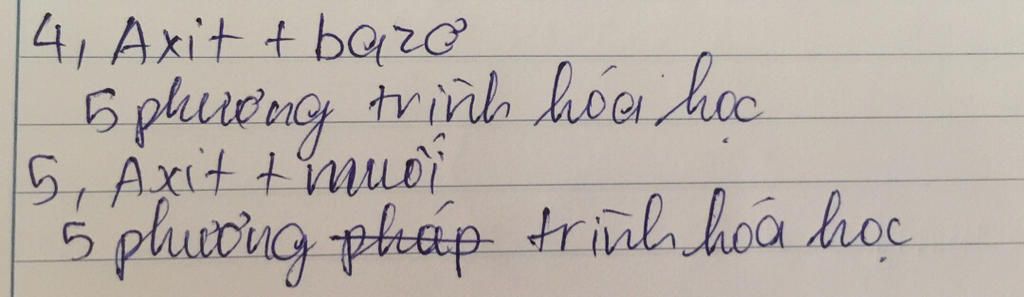 4, Axit + bazơ
5 phương trình hóa học
5, Axit + muối
5 phương pháp trình hóa học